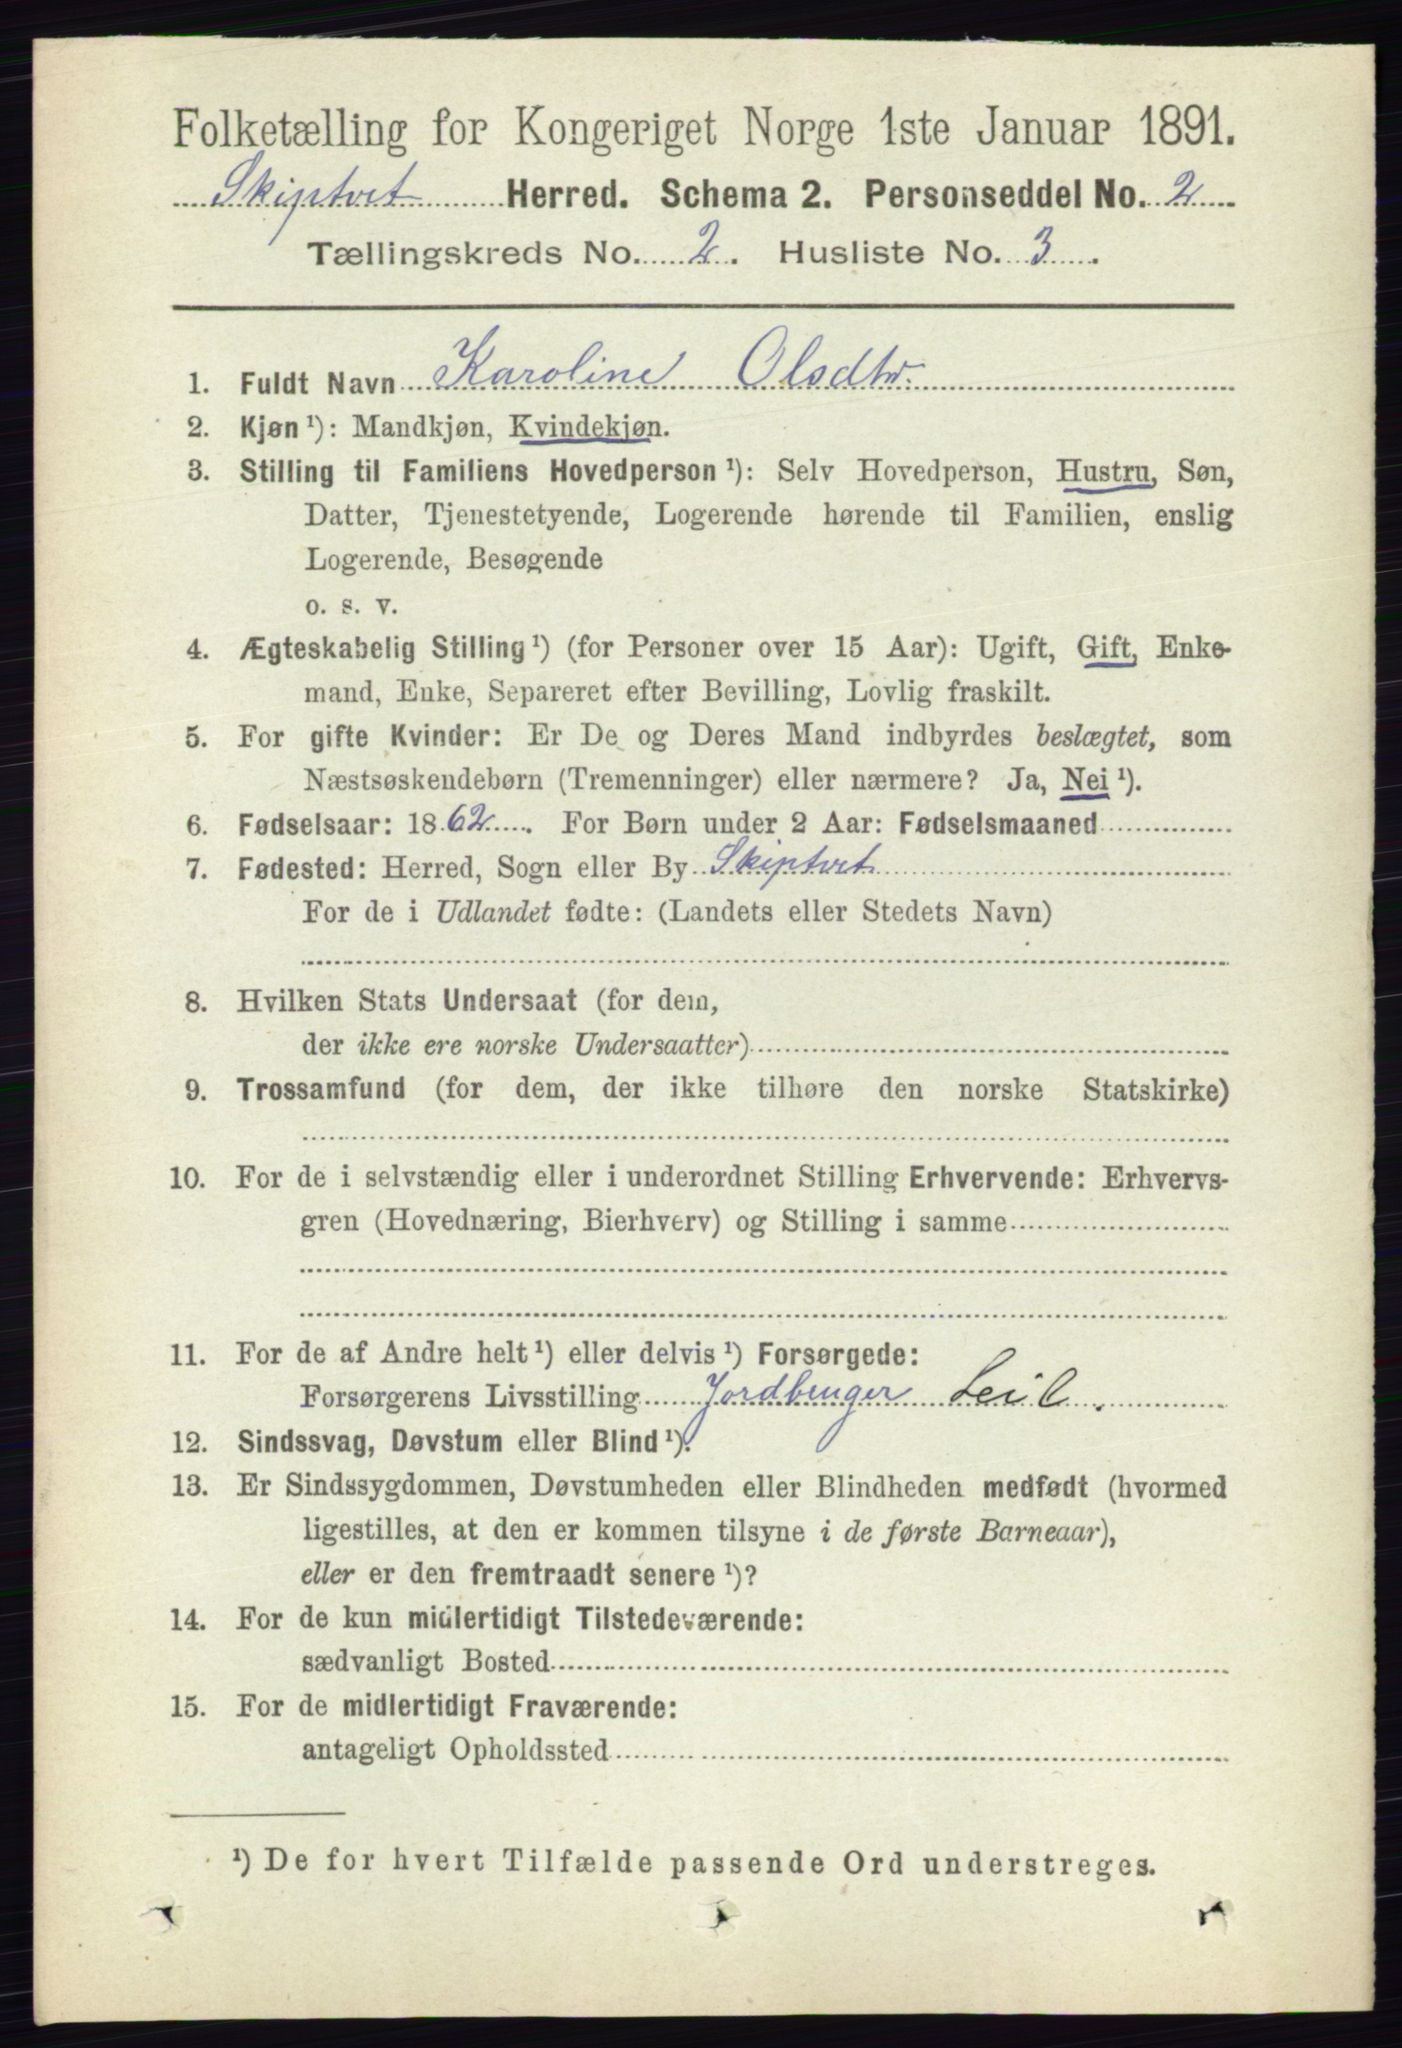 Folketælling for Kongeriget Norge 1ste Januar 1891.
Skiptvet Herred. Schema 2. Personseddel No. 2
Tællingskreds No. 2. Husliste No. 3.
1. Fuldt Navn Karoline Olsdtr.
2. Kjøn ¹): Mandkjøn, Kvindekjøn.
3. Stilling til Familiens Hovedperson ¹): Selv Hovedperson, Hustru, Søn,
Datter, Tjenestetyende, Logerende hørende til Familien, enslig
Logerende, Besøgende
o. s. v.
4. Ægteskabelig Stilling ¹) (for Personer over 15 Aar): Ugift, Gift, Enke-
mand, Enke, Separeret efter Bevilling, Lovlig fraskilt.
5. For gifte Kvinder: Er De og Deres Mand indbyrdes beslægtet, som
Næstsøskendebørn (Tremenninger) eller nærmere? Ja, Nei ¹).
6. Fødselsaar: 1862. For Børn under 2 Aar: Fødselsmaaned
7. Fødested: Herred, Sogn eller By Skiptvet
For de i Udlandet fødte: (Landets eller Stedets Navn)
8. Hvilken Stats Undersaat (for dem,
der ikke ere norske Undersaatter)
9. Trossamfund (for dem, der ikke tilhøre den norske Statskirke)
10. For de i selvstændig eller i underordnet Stilling Erhvervende: Erhvervs-
gren (Hovednæring, Bierhverv) og Stilling i samme
11. For de af Andre helt ¹) eller delvis ¹) Forsørgede:
Forsørgerens Livsstilling Jordbruger Leil.
12. Sindssvag, Døvstum eller Blind ¹).
13. Er Sindssygdommen, Døvstumheden eller Blindheden medfødt (hvormed
ligestilles, at den er kommen tilsyne i de første Barneaar),
eller er den fremtraadt senere ¹)?
14. For de kun midlertidigt Tilstedeværende:
sædvanligt Bosted
15. For de midlertidigt Fraværende:
antageligt Opholdssted
¹) De for hvert Tilfælde passende Ord understreges.